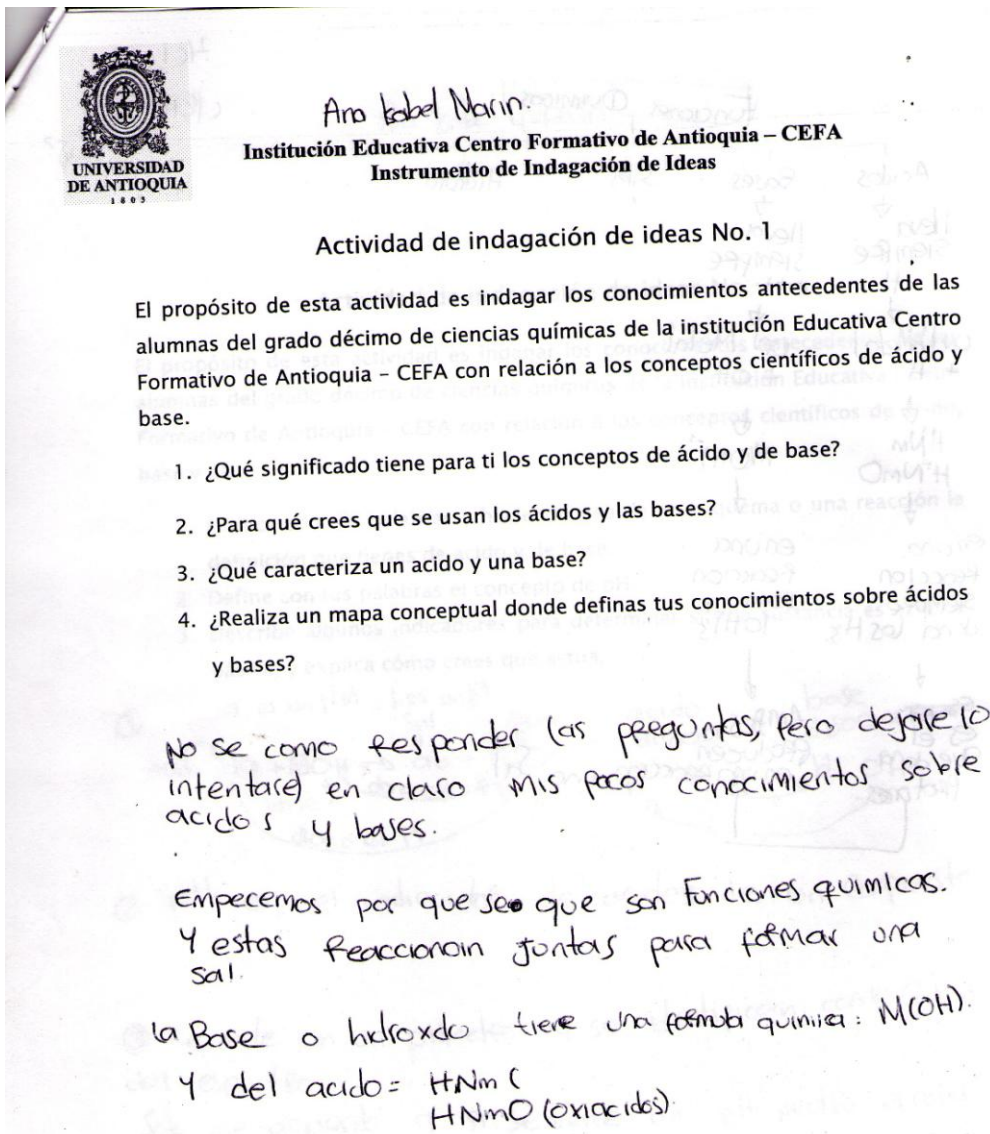 UNIVERSIDAD
DE ANTIOQUIA
1803
Ana Isabel Marin.
Institución Educativa Centro Formativo de Antioquia – CEFA
Instrumento de Indagación de Ideas
Actividad de indagación de ideas No. 1
El propósito de esta actividad es indagar los conocimientos antecedentes de las
alumnas del grado décimo de ciencias químicas de la institución Educativa Centro
Formativo de Antioquia – CEFA con relación a los conceptos científicos de ácido y
base.
1. ¿Qué significado tiene para ti los conceptos de ácido y de base?
2. ¿Para qué crees que se usan los ácidos y las bases?
3. ¿Qué caracteriza un acido y una base?
4. ¿Realiza un mapa conceptual donde definas tus conocimientos sobre ácidos
y bases?
No se como Responder las preguntas, Pero dejare (o
intentare) en claro mis pocos conocimientos sobre
acidos y bases.
Empecemos por que se que son Funciones quimicas.
Y estas Reaccionan Juntas para formar una
sal.
la Base o hidroxido tiene una formula quimica: M(OH).
Y del acido = HNm (
HNmO (oxiacidos).